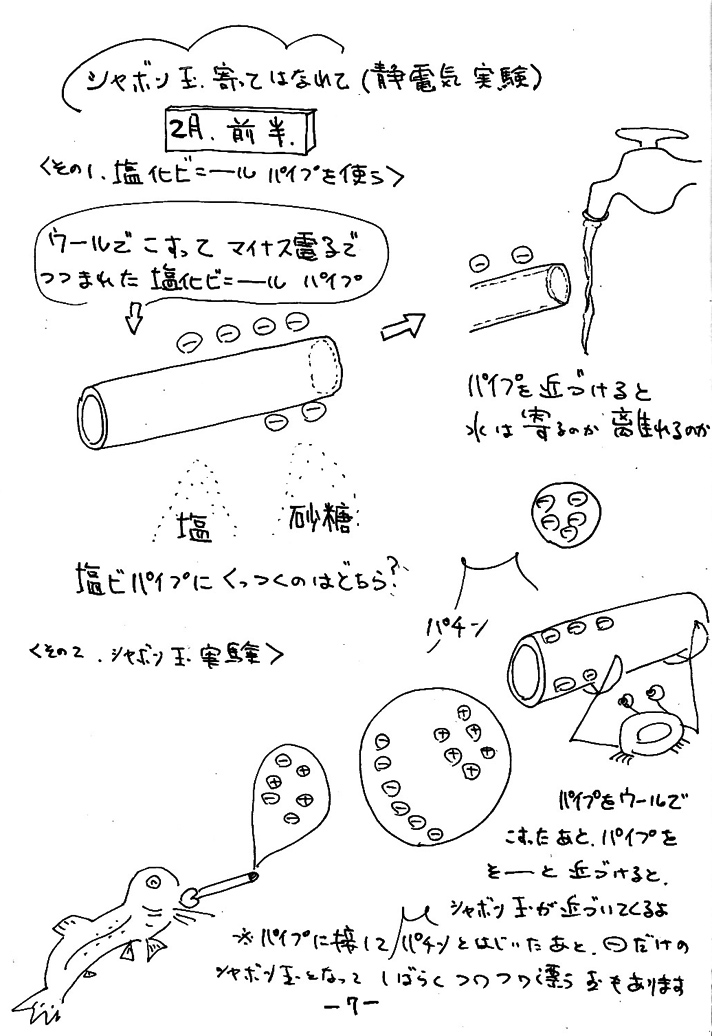 シャボン玉.寄ってはなれて(静電気実験)
2月.前半.
<その1.塩化ビニールパイプを使う>
ウールでこすってマイナス電子で
つつまれた塩化ビニールパイプ
⊖ ⊖ ⊖ ⊖
⊖ ⊖
⊖ ⊖
パイプを近づけると
水は寄るのか離れるのか
塩
砂糖
塩ビパイプにくっつくのはどちら?
⊖ ⊖ ⊖ ⊖ ⊖
パチン
<その2.シャボン玉.実験>
⊖ ⊖ ⊖
⊖ ⊖
⊖ ⊖ ⊖ ⊖ ⊖ ⊖
⊕ ⊕ ⊕ ⊕ ⊕ ⊕
⊖ ⊕
⊕
⊖ ⊕
⊖
パイプをウールで
こすったあと.パイプを
そーっと近づけると.
シャボン玉が近づいてくるよ
※パイプに接してパチンとはじいたあと.⊖だけの
シャボン玉となってしばらくフワフワ漂う玉もあります
-7-